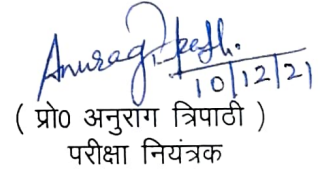 Anurag Tripathi.
10/12/21
( प्रो0 अनुराग त्रिपाठी )
परीक्षा नियंत्रक